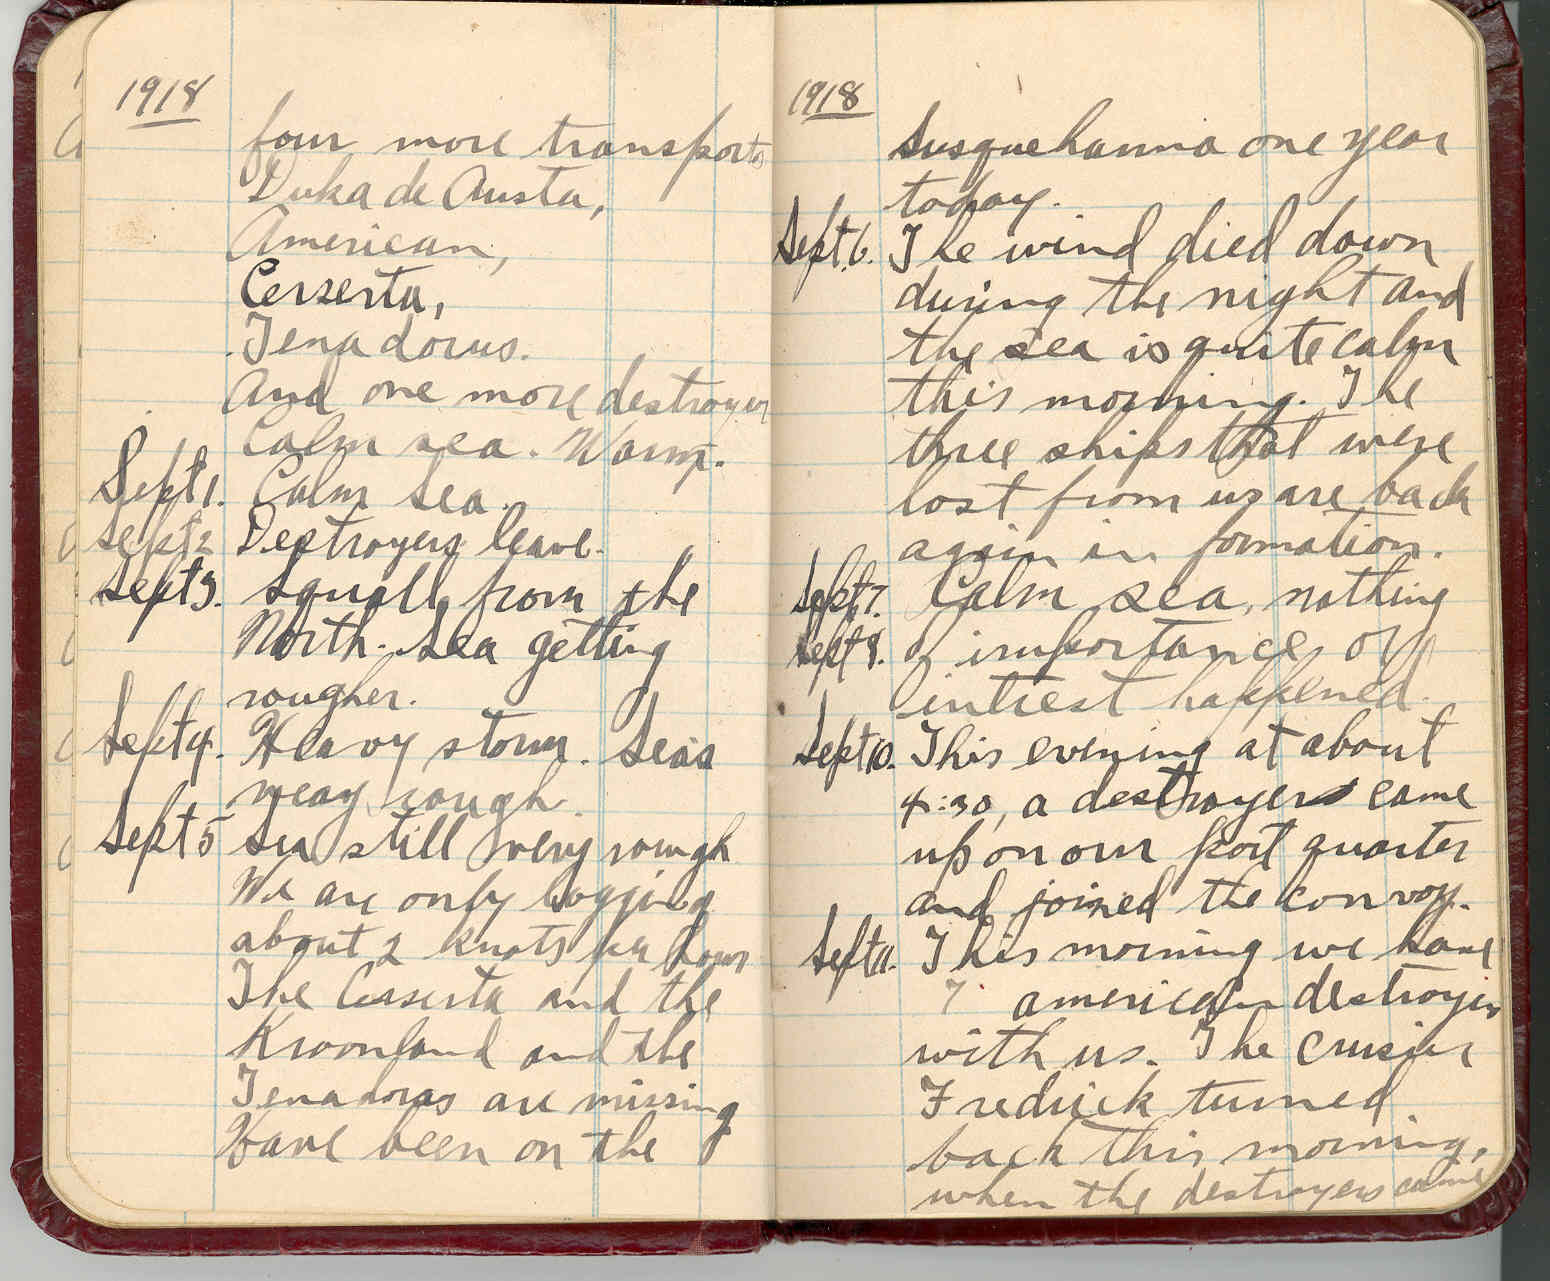 1918
four more transports
Duka de Austa,
American,
Cerserta,
Tenadorus.
And one more destroyer
Calm sea. Warm.
Sept 1. Calm sea.
Sept 2 Destroyers leave.
Sept 3. Squally from the
North. Sea getting
rougher.
Sept 4. Heavy storm. Seas
very rough.
Sept 5 Sea still very rough
We are only logging
about 2 knots per hour
The Cesserta and the
Kroonland and the
Tenadoras are missing
Have been on the
1918
Susquehanna one year
today.
Sept. 6. The wind died down
during the night and
the sea is quite calm
this morning. The
three ships that were
lost from us are back
again in formation.
Sept. 7. Calm sea, nothing
Sept 8. of importance or
intrest happened.
Sept 10. This evening at about
4:30, a destroyer came
up on our port quarter
and joined the convoy.
Sept 11. This morning we have
7 american destroyers
with us. The cruiser
Fredrick turned
back this morning,
when the destroyers came